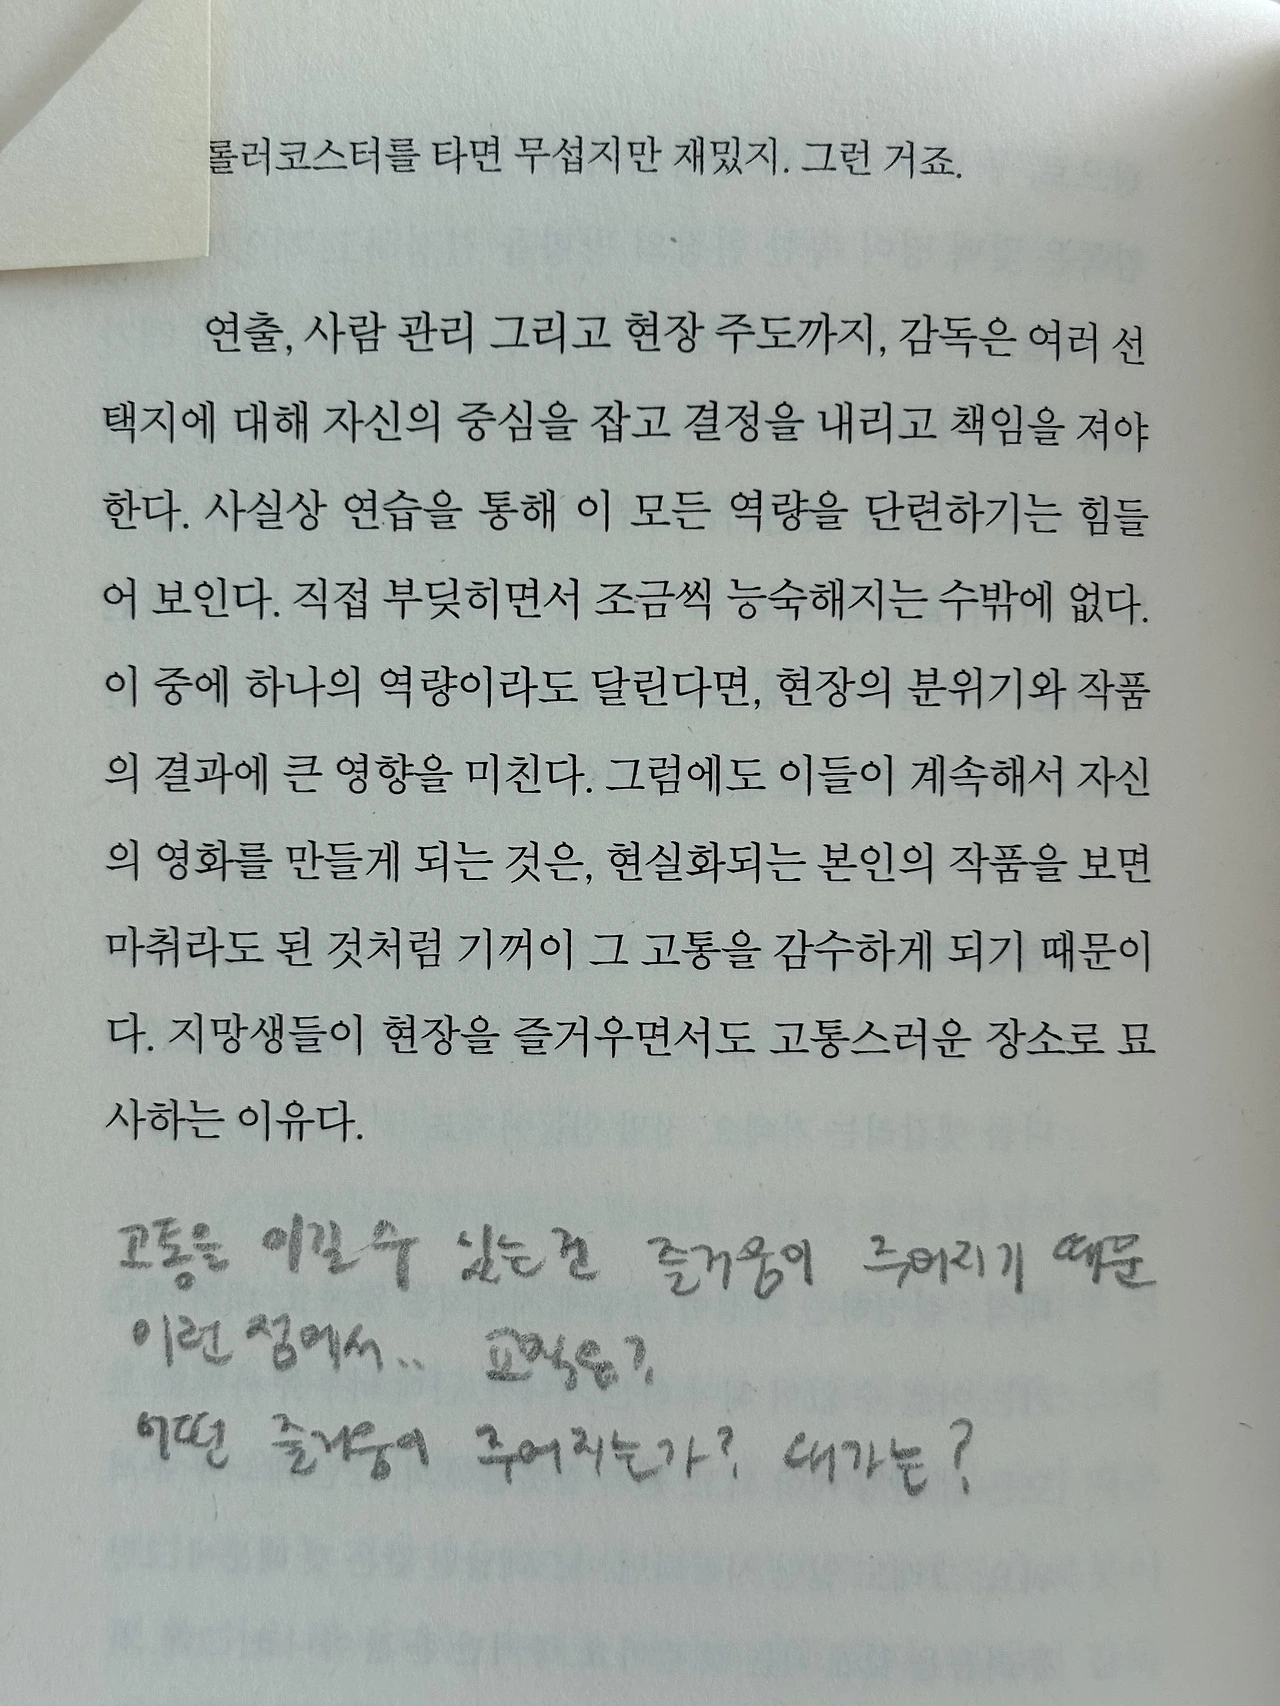 롤러코스터를 타면 무섭지만 재밌지. 그런 거죠.
연출, 사람 관리 그리고 현장 주도까지, 감독은 여러 선
택지에 대해 자신의 중심을 잡고 결정을 내리고 책임을 져야
한다. 사실상 연습을 통해 이 모든 역량을 단련하기는 힘들
어 보인다. 직접 부딪히면서 조금씩 능숙해지는 수밖에 없다.
이 중에 하나의 역량이라도 달린다면, 현장의 분위기와 작품
의 결과에 큰 영향을 미친다. 그럼에도 이들이 계속해서 자신
의 영화를 만들게 되는 것은, 현실화되는 본인의 작품을 보면
마취라도 된 것처럼 기꺼이 그 고통을 감수하게 되기 때문이
다. 지망생들이 현장을 즐거우면서도 고통스러운 장소로 묘
사하는 이유다.
고통을 이길 수 있는 건 즐거움이 주어지기 때문
이런 점에서.. 교직은?
어떤 즐거움이 주어지는가? 대가는?